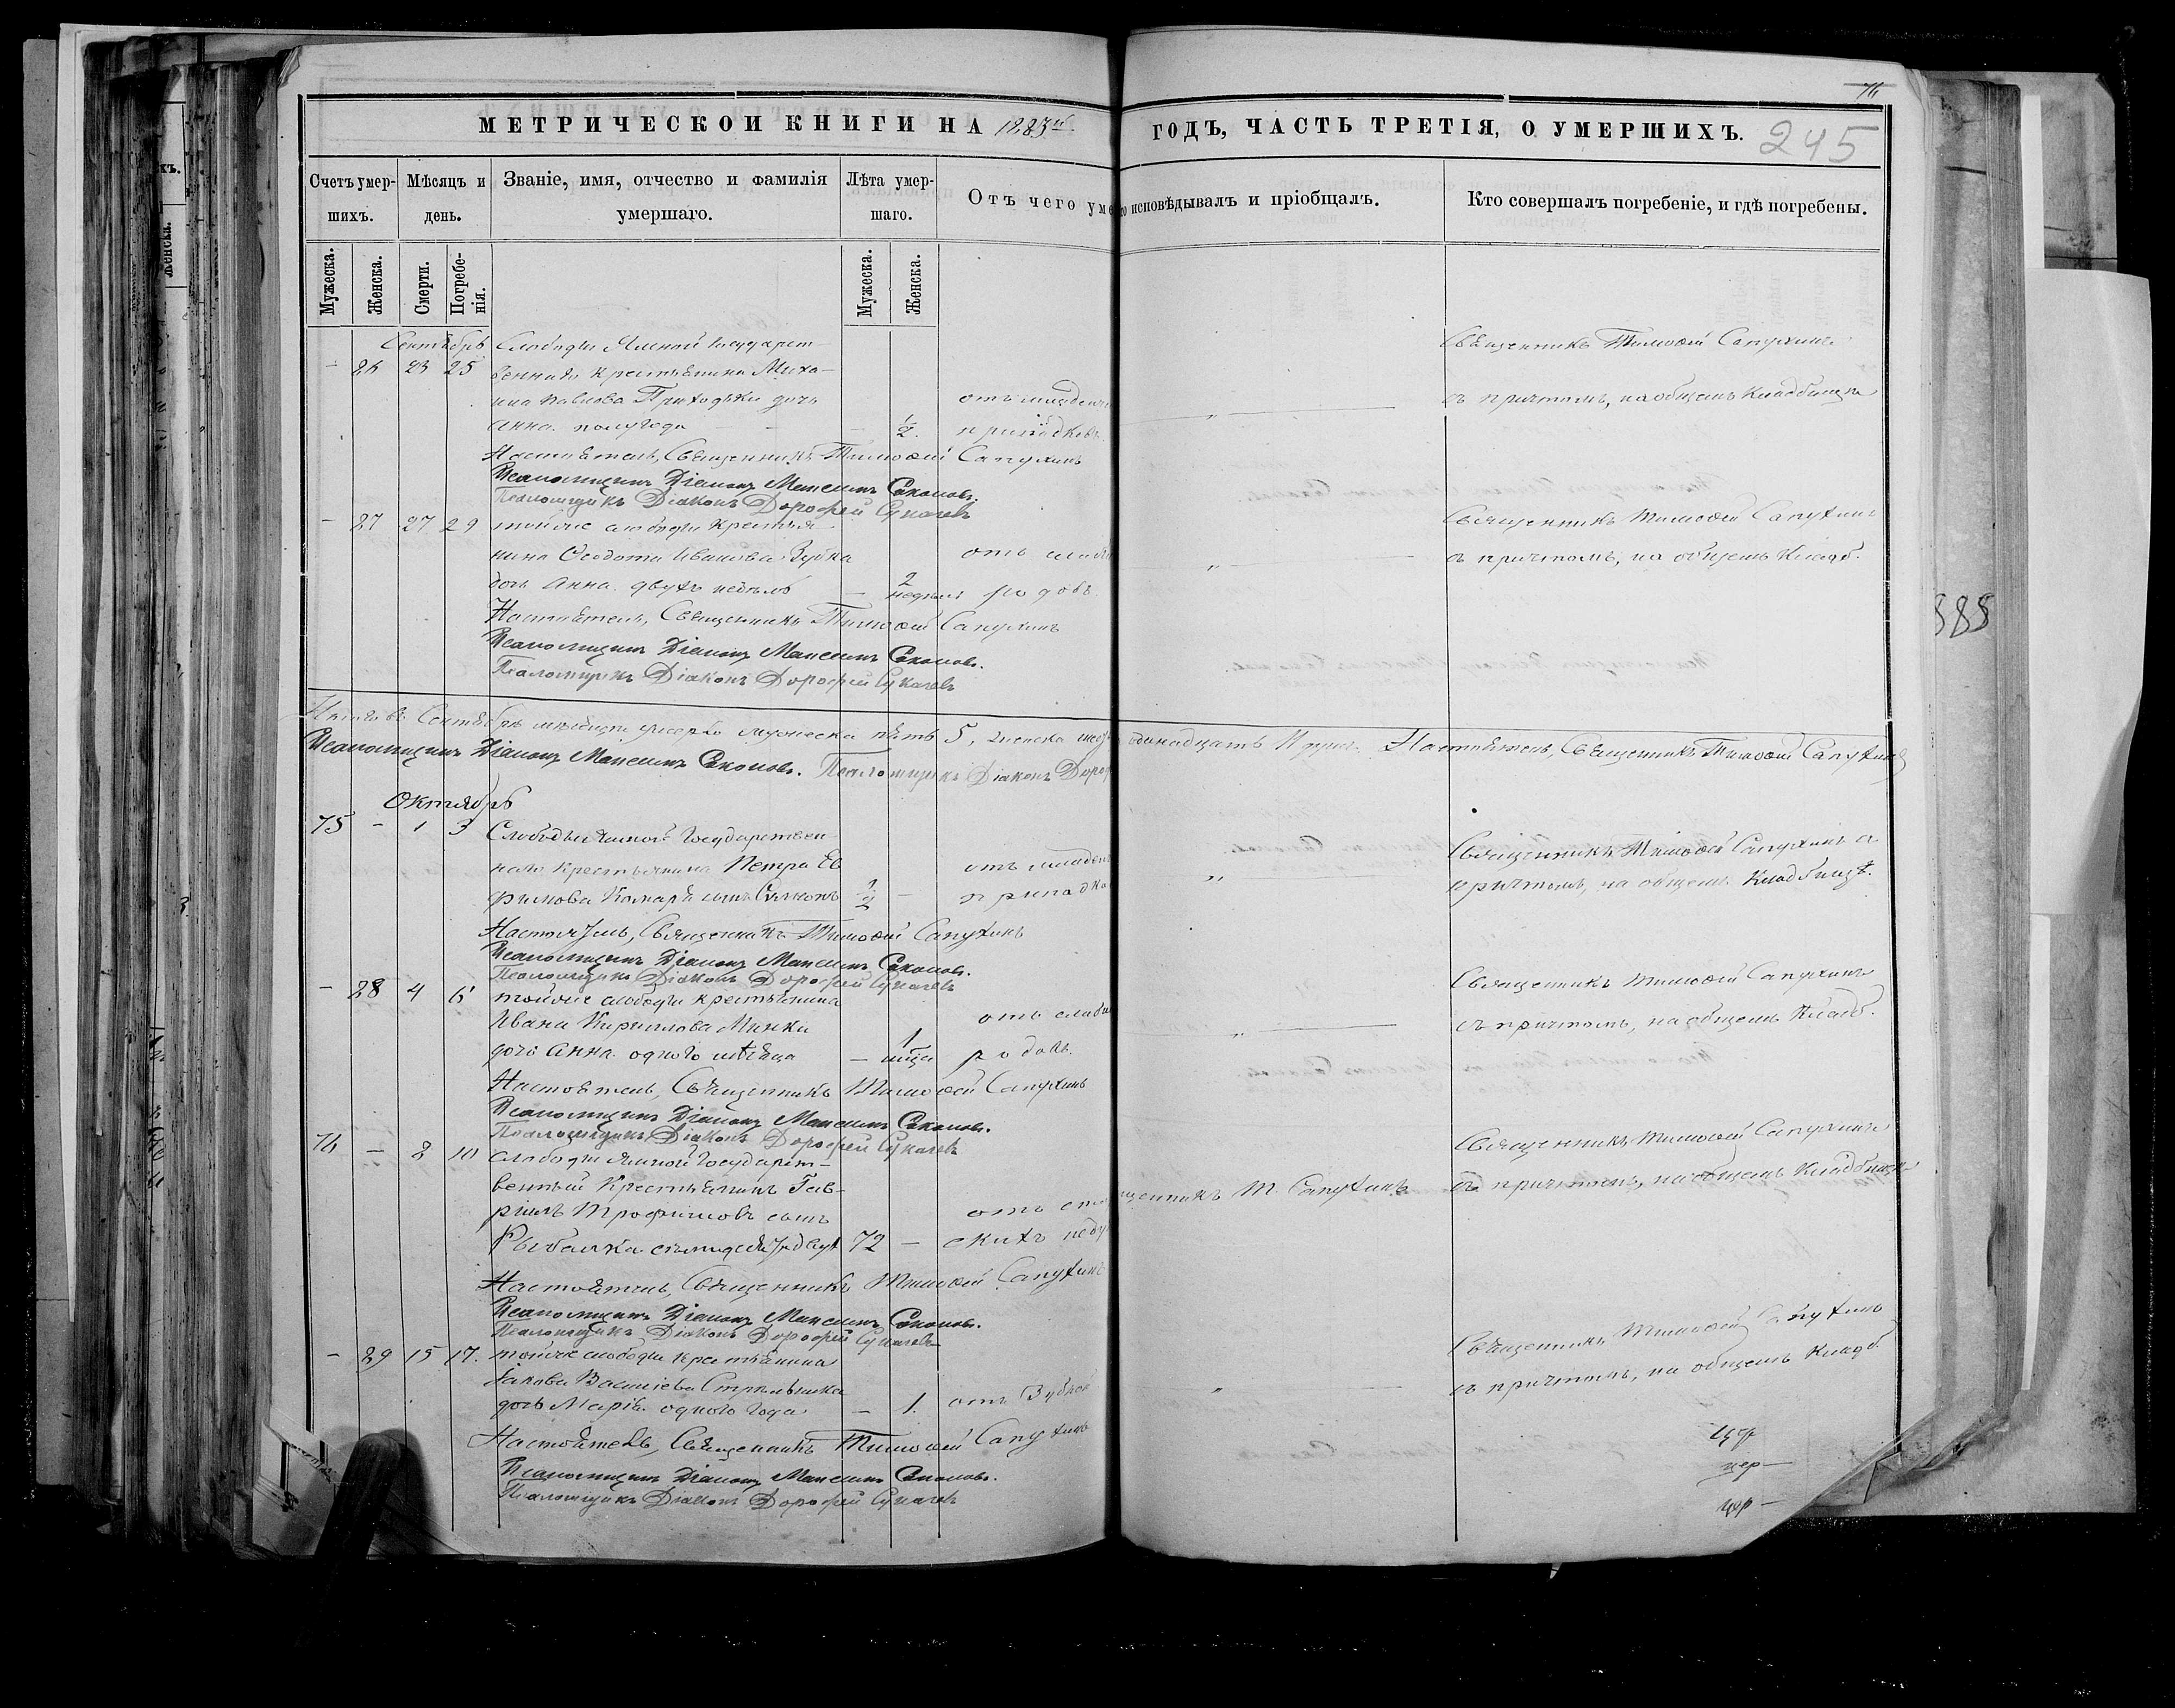 76
МЕТРИЧЕСКОЙ КНИГИ НА 1883й. ГОДЪ, ЧАСТЬ ТРЕТІЯ, О УМЕРШИХЪ. 245
Счетъ умер-
шихъ.
Мѣсяцъ и
день.
Званіе, имя, отчество и фамилія
умершаго.
Лѣта умер-
шаго.
Отъ чего уме
о исповѣдывалъ и пріобщалъ.
Кто совершалъ погребеніе, и гдѣ погребены.
Мужеска.
Женска.
Смерти.
Погребе-
нія.
Мужеска.
Женска.
Сентябрь
- 26 23 25
Слободы Государст-
веннаго крестьянина Миха-
ила Павлова Приходьки дочь
Анна. полугода - 1/2.
отъ младенч
припадковъ.
Священникъ Тимоѳей Сапухинъ
съ причтомъ, на общемъ Кладбищѣ
Настоятель, Священникъ Тимоѳей Сапухинъ
Псаломщикъ Діаконъ Максимъ Соколовъ.
Псаломщикъ Діаконъ Дорофей Сукачевъ
- 27 27 29
тойже слободы крестья-
нина Ѳеодота Иванова Зубка
дочь Анна. двухъ недѣль - 2 недѣли
отъ слабы
родовъ.
Священникъ Тимоѳей Сапухинъ
съ причтомъ, на общемъ Кладб.
Настоятель, Священникъ Тимоѳей Сапухинъ
Псаломщикъ Діаконъ Максимъ Соколовъ.
Псаломщикъ Діаконъ Дорофей Сукачевъ
Итого въ Сентябрѣ мѣсяцѣ умерло мужеска пять 5, женска
одинадцать Настоятель, Священникъ Тимоѳей Сапухинъ
Псаломщикъ Діаконъ Максимъ Соколовъ. Псаломщикъ Діаконъ Дороф
Октябрь
75 - 1 3
Слободы Государствен-
наго крестьянина Петра Ев
фимова Комаря сынъ Симонъ 1/2 -
отъ младен
припадко
Священникъ Тимоѳей Сапухинъ съ
причтомъ, на общемъ Кладбищѣ.
Настоятель, Священникъ Тимоѳей Сапухинъ
Псаломщикъ Діаконъ Максимъ Соколовъ.
Псаломщикъ Діаконъ Дорофей Сукачевъ
- 28 4 6
тойже слободы крестьянина
Ивана Кириллова Минки
дочь Анна. одного мѣсяца - 1 мца
отъ слабы
родовъ.
Священникъ Тимоѳей Сапухинъ
съ причтомъ, на общемъ Кладб.
Настоятель, Священникъ Тимоѳей Сапухинъ
Псаломщикъ Діаконъ Максимъ Соколовъ.
Псаломщикъ Діаконъ Дорофей Сукачевъ
76 - 8 10
Слободы Государст-
венный крестьянинъ Гав-
риилъ Трофимовъ сынъ
Рыбалка 72 -
отъ ста
скихъ неду
щенникъ Т. Сапухинъ
Священникъ Тимоѳей Сапухинъ
съ причтомъ, на общемъ Кладбищѣ
Настоятель, Священникъ Тимоѳей Сапухинъ
Псаломщикъ Діаконъ Максимъ Соколовъ.
Псаломщикъ Діаконъ Дорофей Сукачевъ
- 29 15 17.
тойже слободы крестьянина
Іакова Василіева Стрельника
дочь Марія. одного года - 1.
отъ Зубной
Священникъ Тимоѳей Сапухинъ
съ причтомъ, на общемъ Кладб.
Настоятель, Священникъ Тимоѳей Сапухинъ
Псаломщикъ Діаконъ Максимъ Соколовъ.
Псаломщикъ Діаконъ Дорофей Сукачевъ